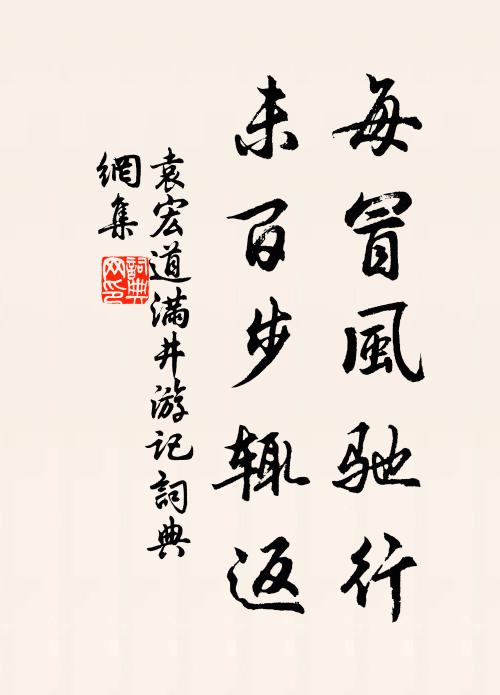 每冒風驰行
未百步辄返
袁宏道满井游记詞典
網集
詞典
网印